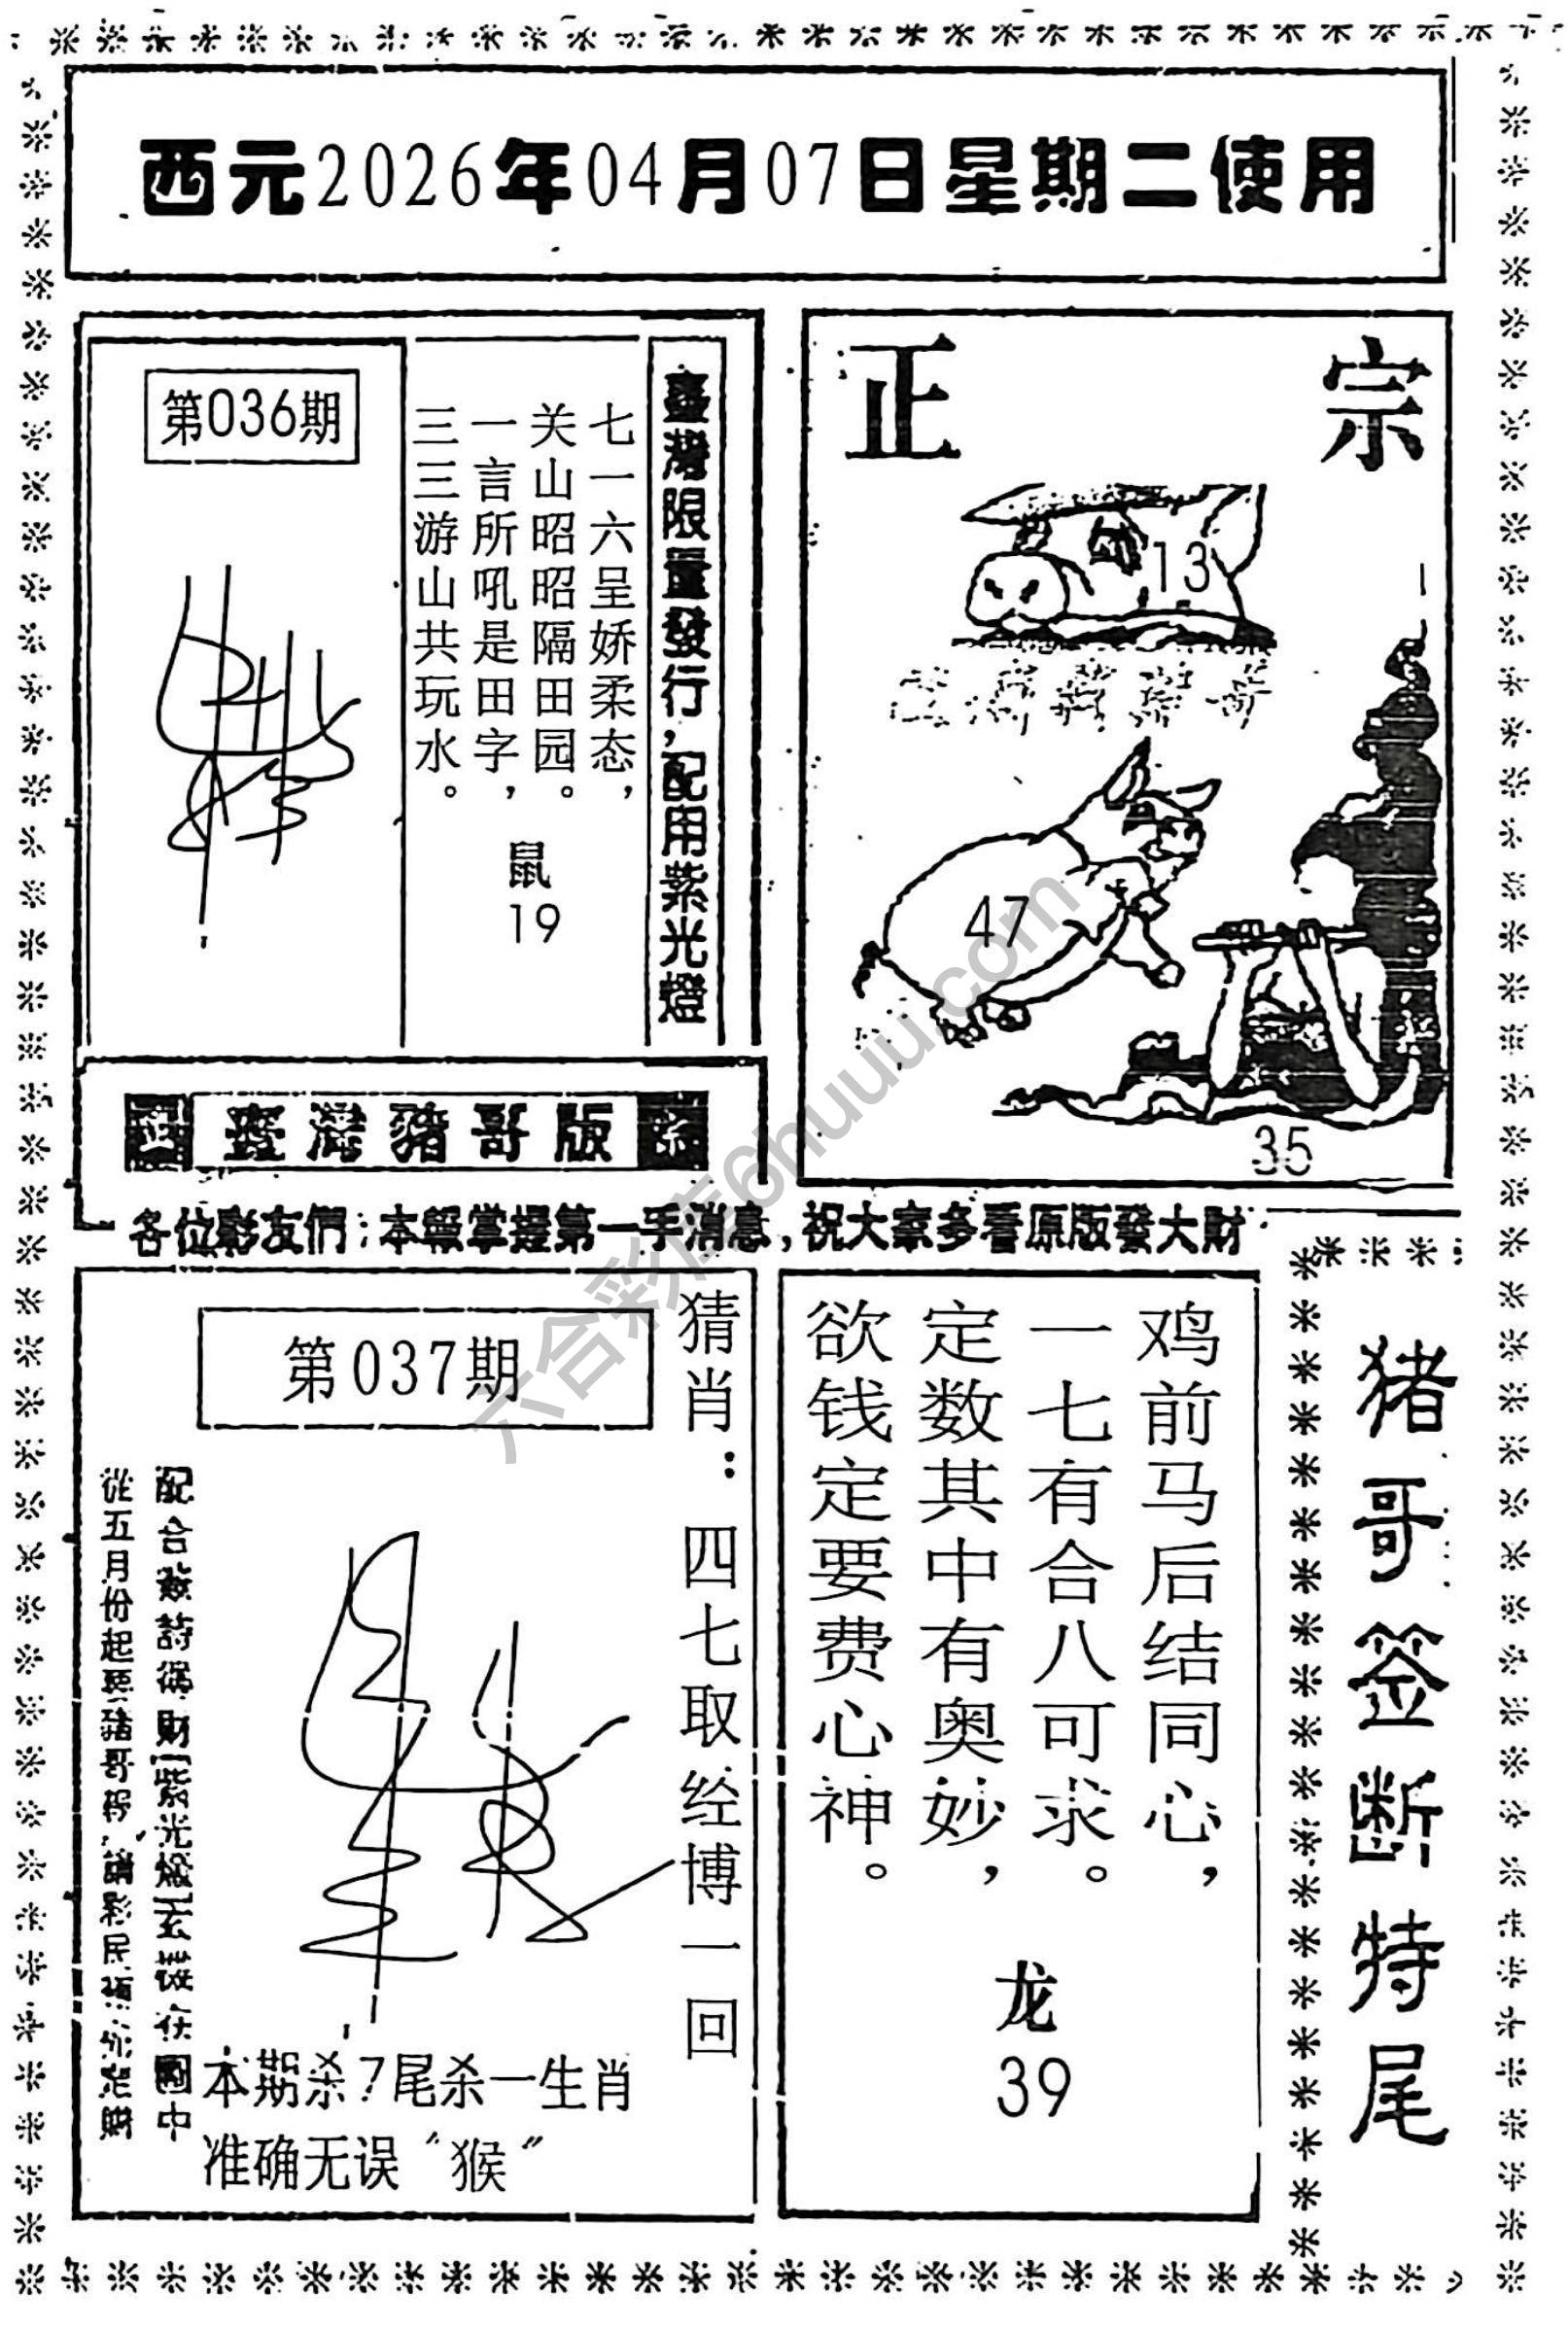 西元2026年04月07日星期二使用
第036期
臺灣限量發行,配用紫光燈
七一六呈娇柔态,
关山昭昭隔田园。
一言所吼是田字,
三三游山共玩水。
鼠
19
正宗
13
47
35
臺灣豬哥版
各位彩友們:本報掌握第一手消息,祝大家多看原版發大財
第037期
猜肖:四七取经博一回
從五月份起
本期杀7尾杀一生肖
准确无误“猴”
鸡前马后结同心,
一七有合八可求。
定数其中有奥妙,
欲钱定要费心神。
龙
39
猪哥签断特尾
六合彩库6huuu.com